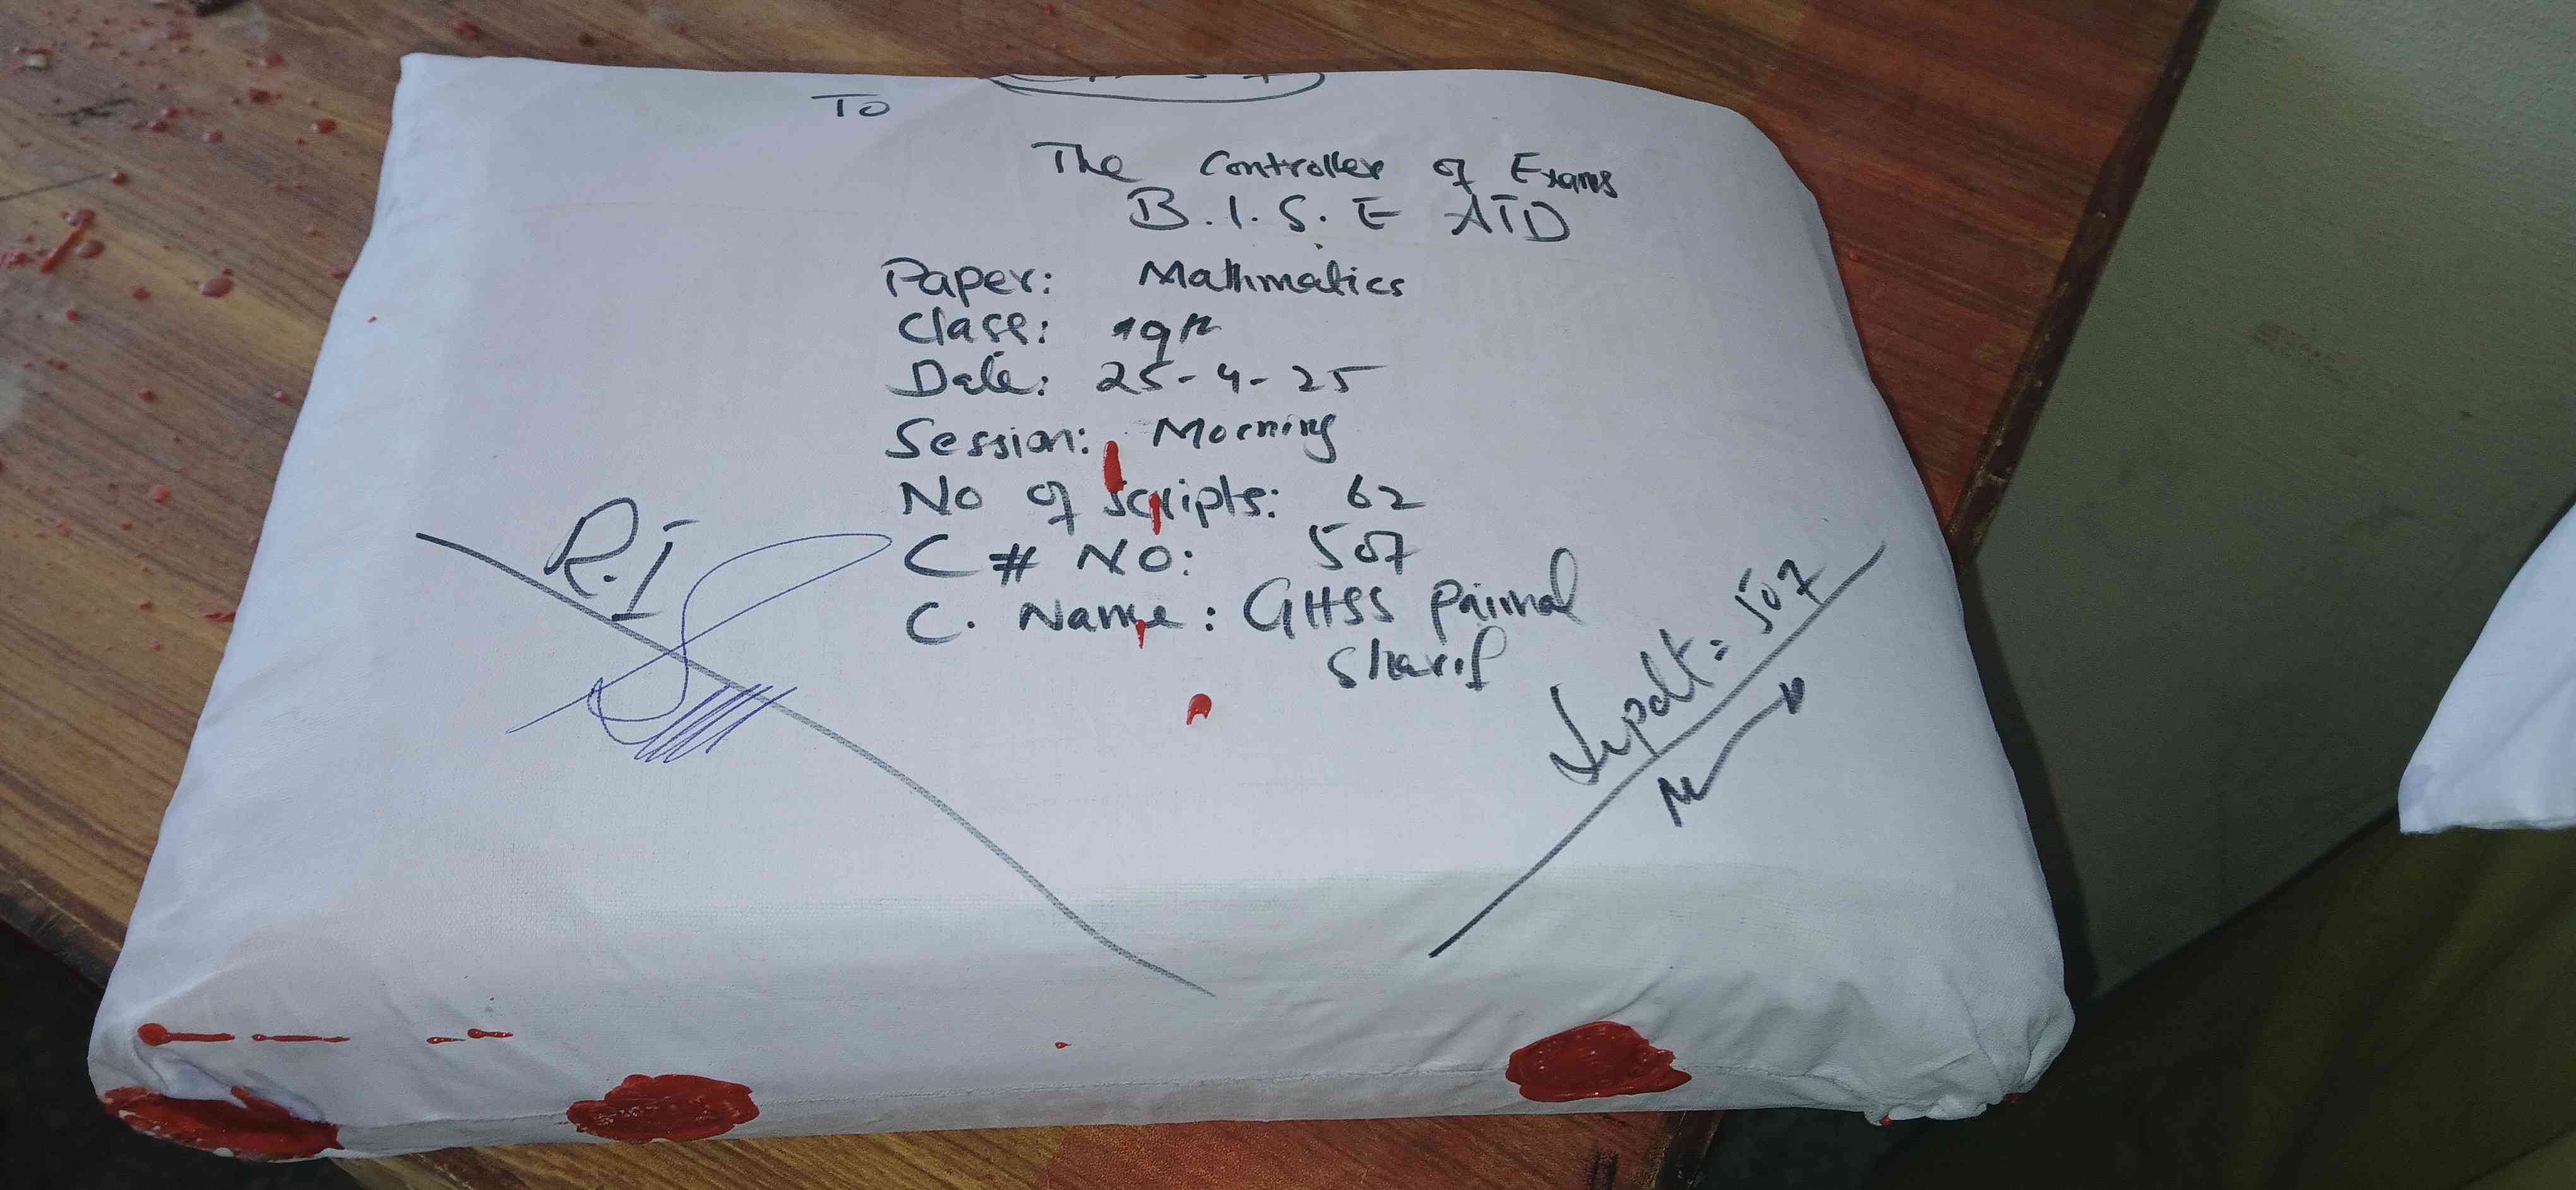 To
The Controller of Exams
B.I.S.E ATD
Paper: Mathmatics
Class: 9th
Date: 25-4-25
Session: Morning
No of Scripts: 62
C # NO: 507
C. Name: GHSS Paimal
Sharif
R.I
Supdt: 507